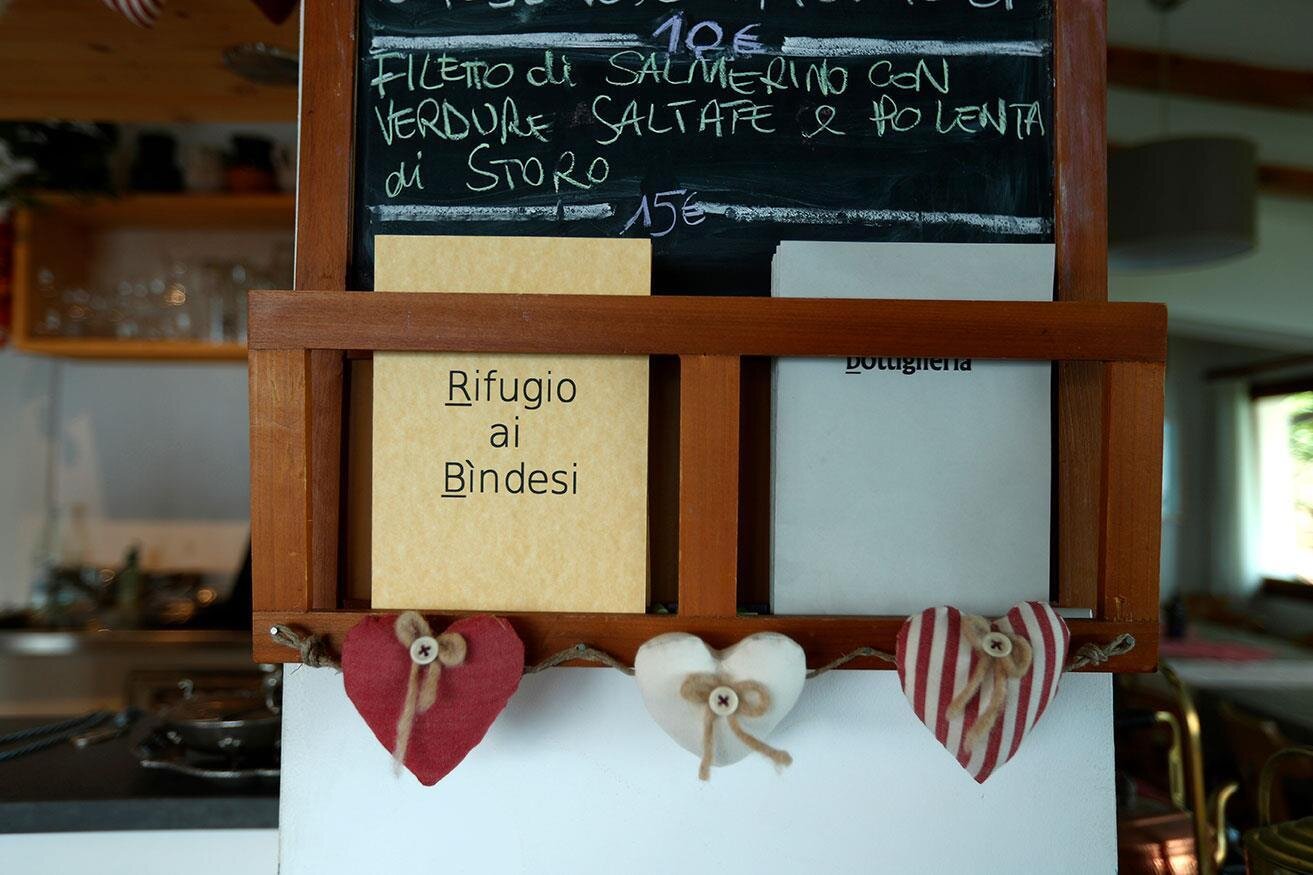 10€
FILETTO di SALMERINO CON
VERDURE SALTATE & POLENTA
di STORO
15€
Rifugio
ai
Bìndesi
Bottiglieria